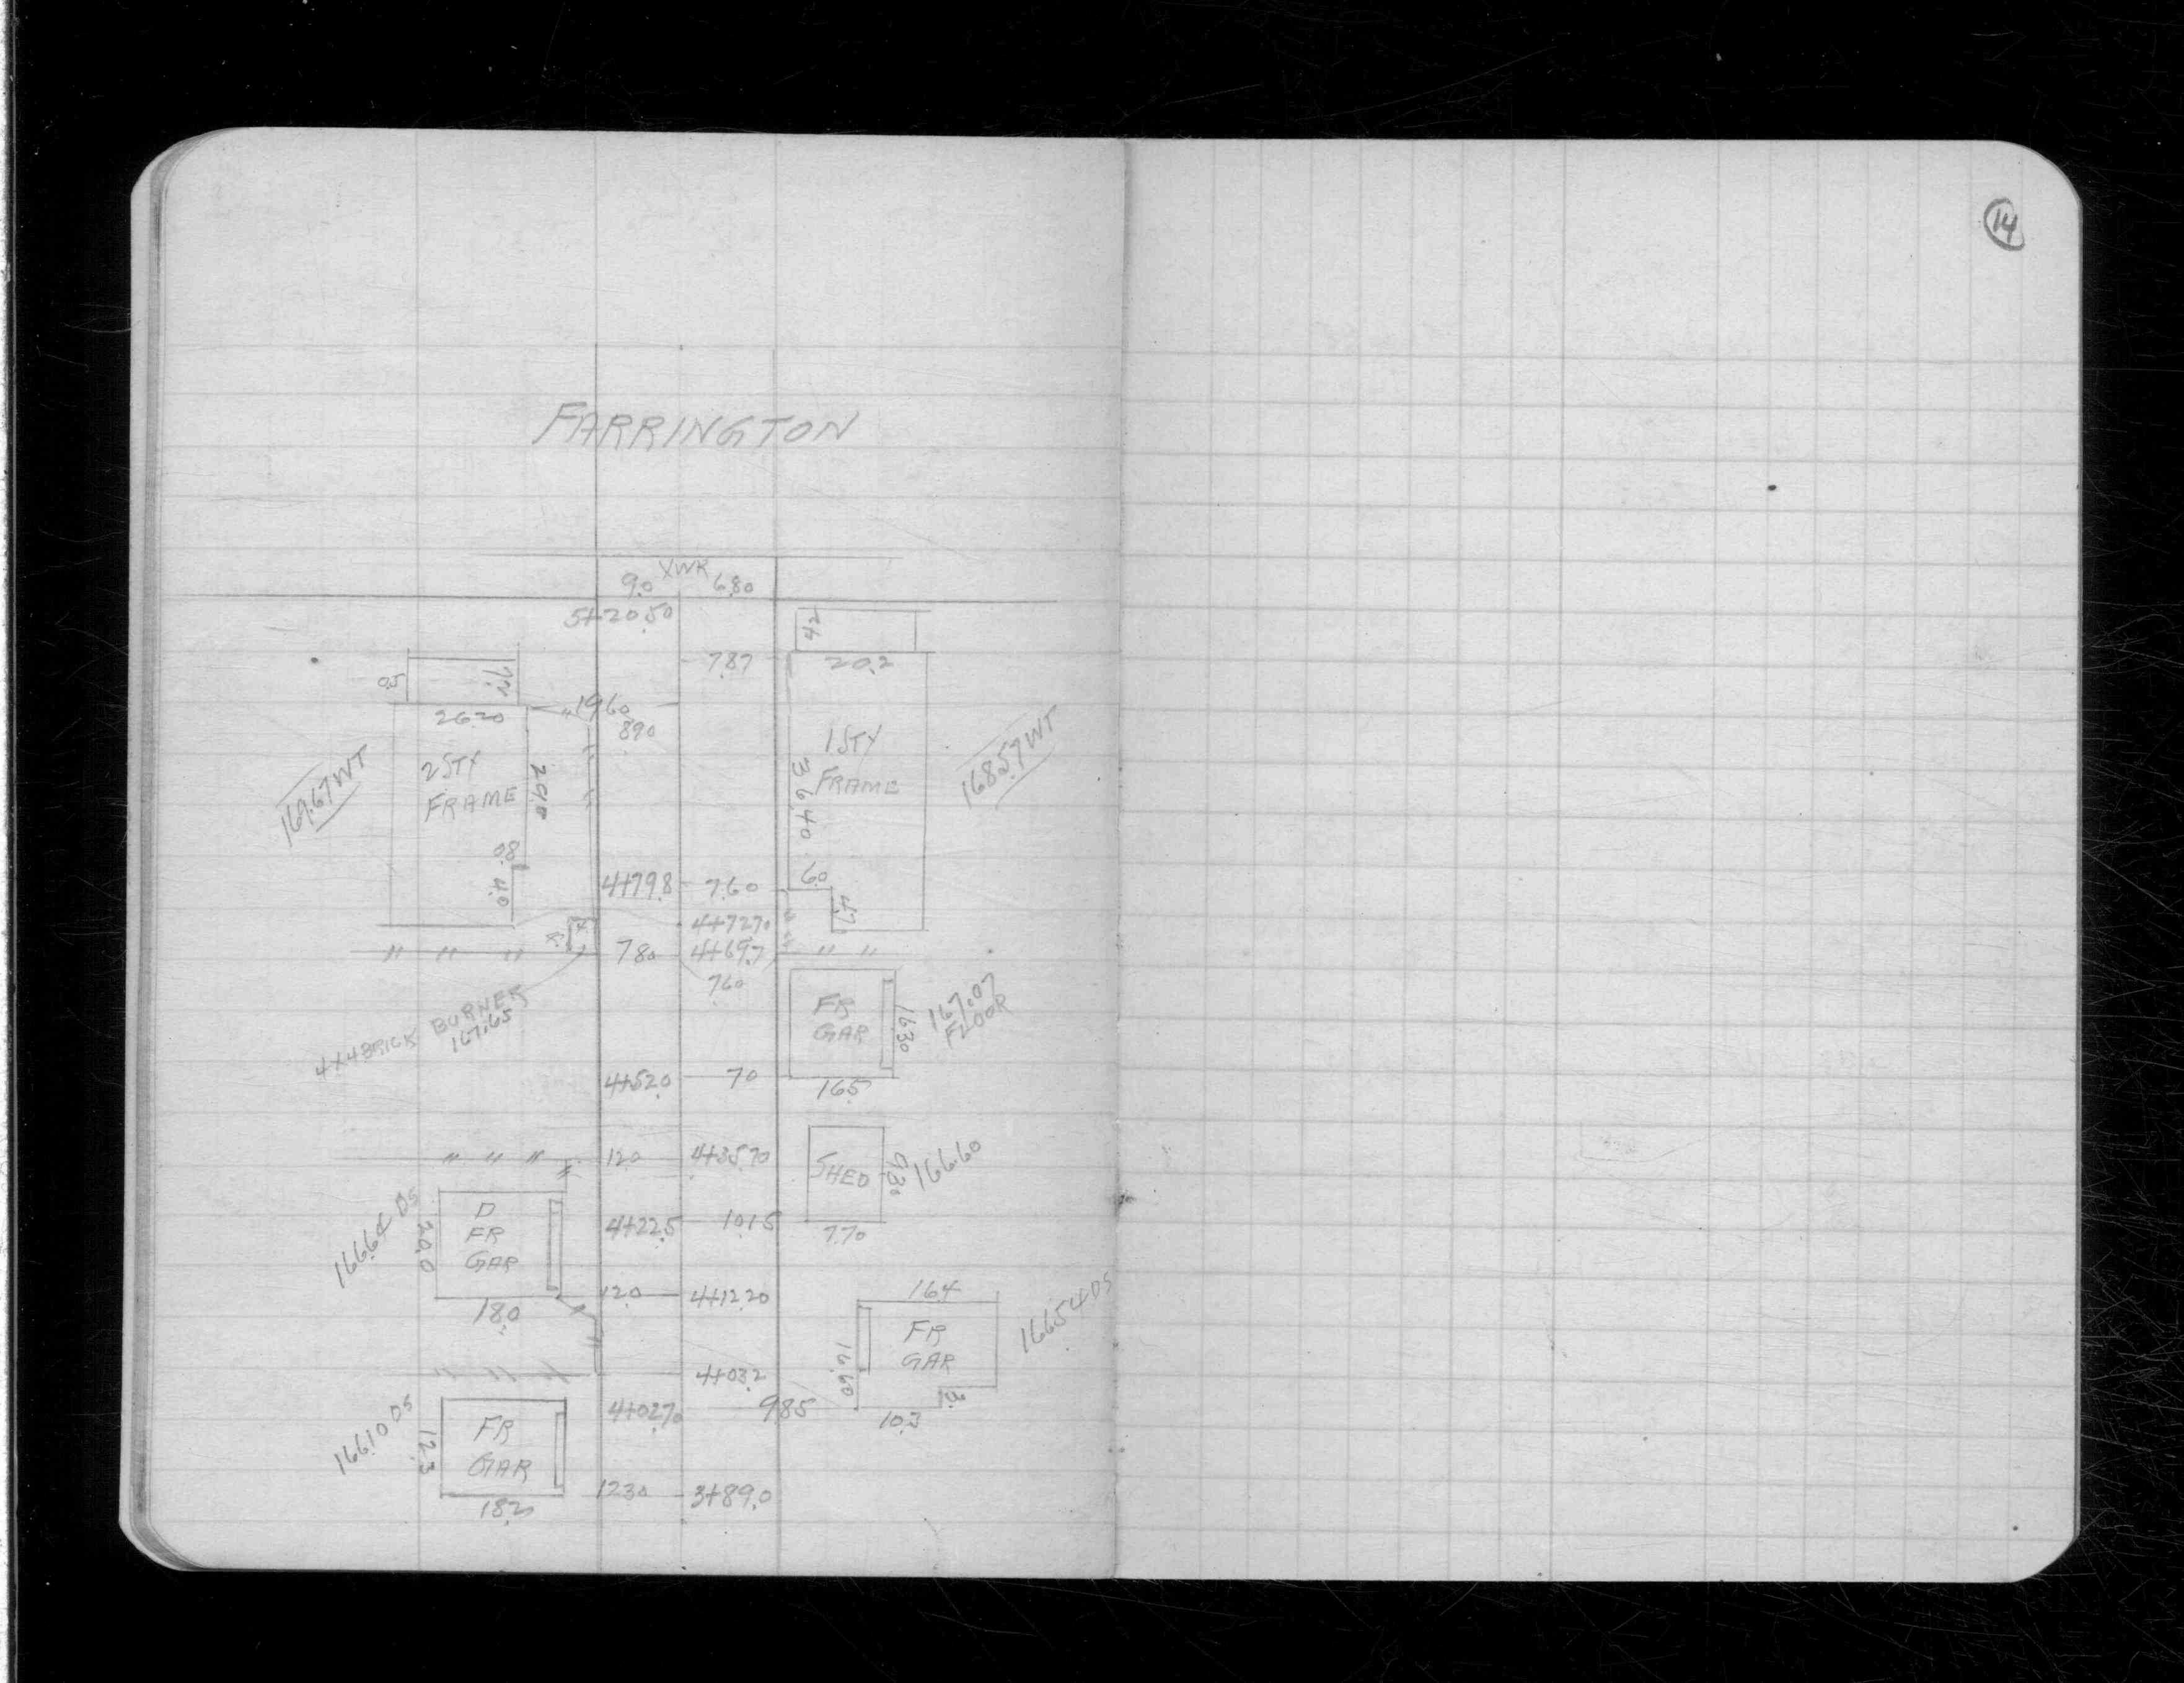 14
FARRINGTON
XWK
9.0 6.80
5+20.50
4.2
7.87 20.2
0.5
26.20
19.60
8.90
1 STY
FRAME
36.40
168.57 WT
2 STY
FRAME
29.0
169.67 WT
0.8
4.0
4+79.8 7.60 6.0
4.7
4+72.70
" " " 7.80 4+69.7 " "
7.60
4X4 BRICK BURNER
167.65
FR
GAR
16.30
167.07
FLOOR
4+52.0 7.0 16.5
" " " 12.0 4+35.70
SHED
9.30
166.60
4+22.5 10.15 7.70
D
FR
GAR
20.0
166.64 DS
18.0
12.0 4+12.20
16.4
FR
GAR
16.60
166.54 DS
4+03.2
4+02.70 9.85 10.3
FR
GAR
12.3
166.10 DS
18.2
12.30 3+89.0